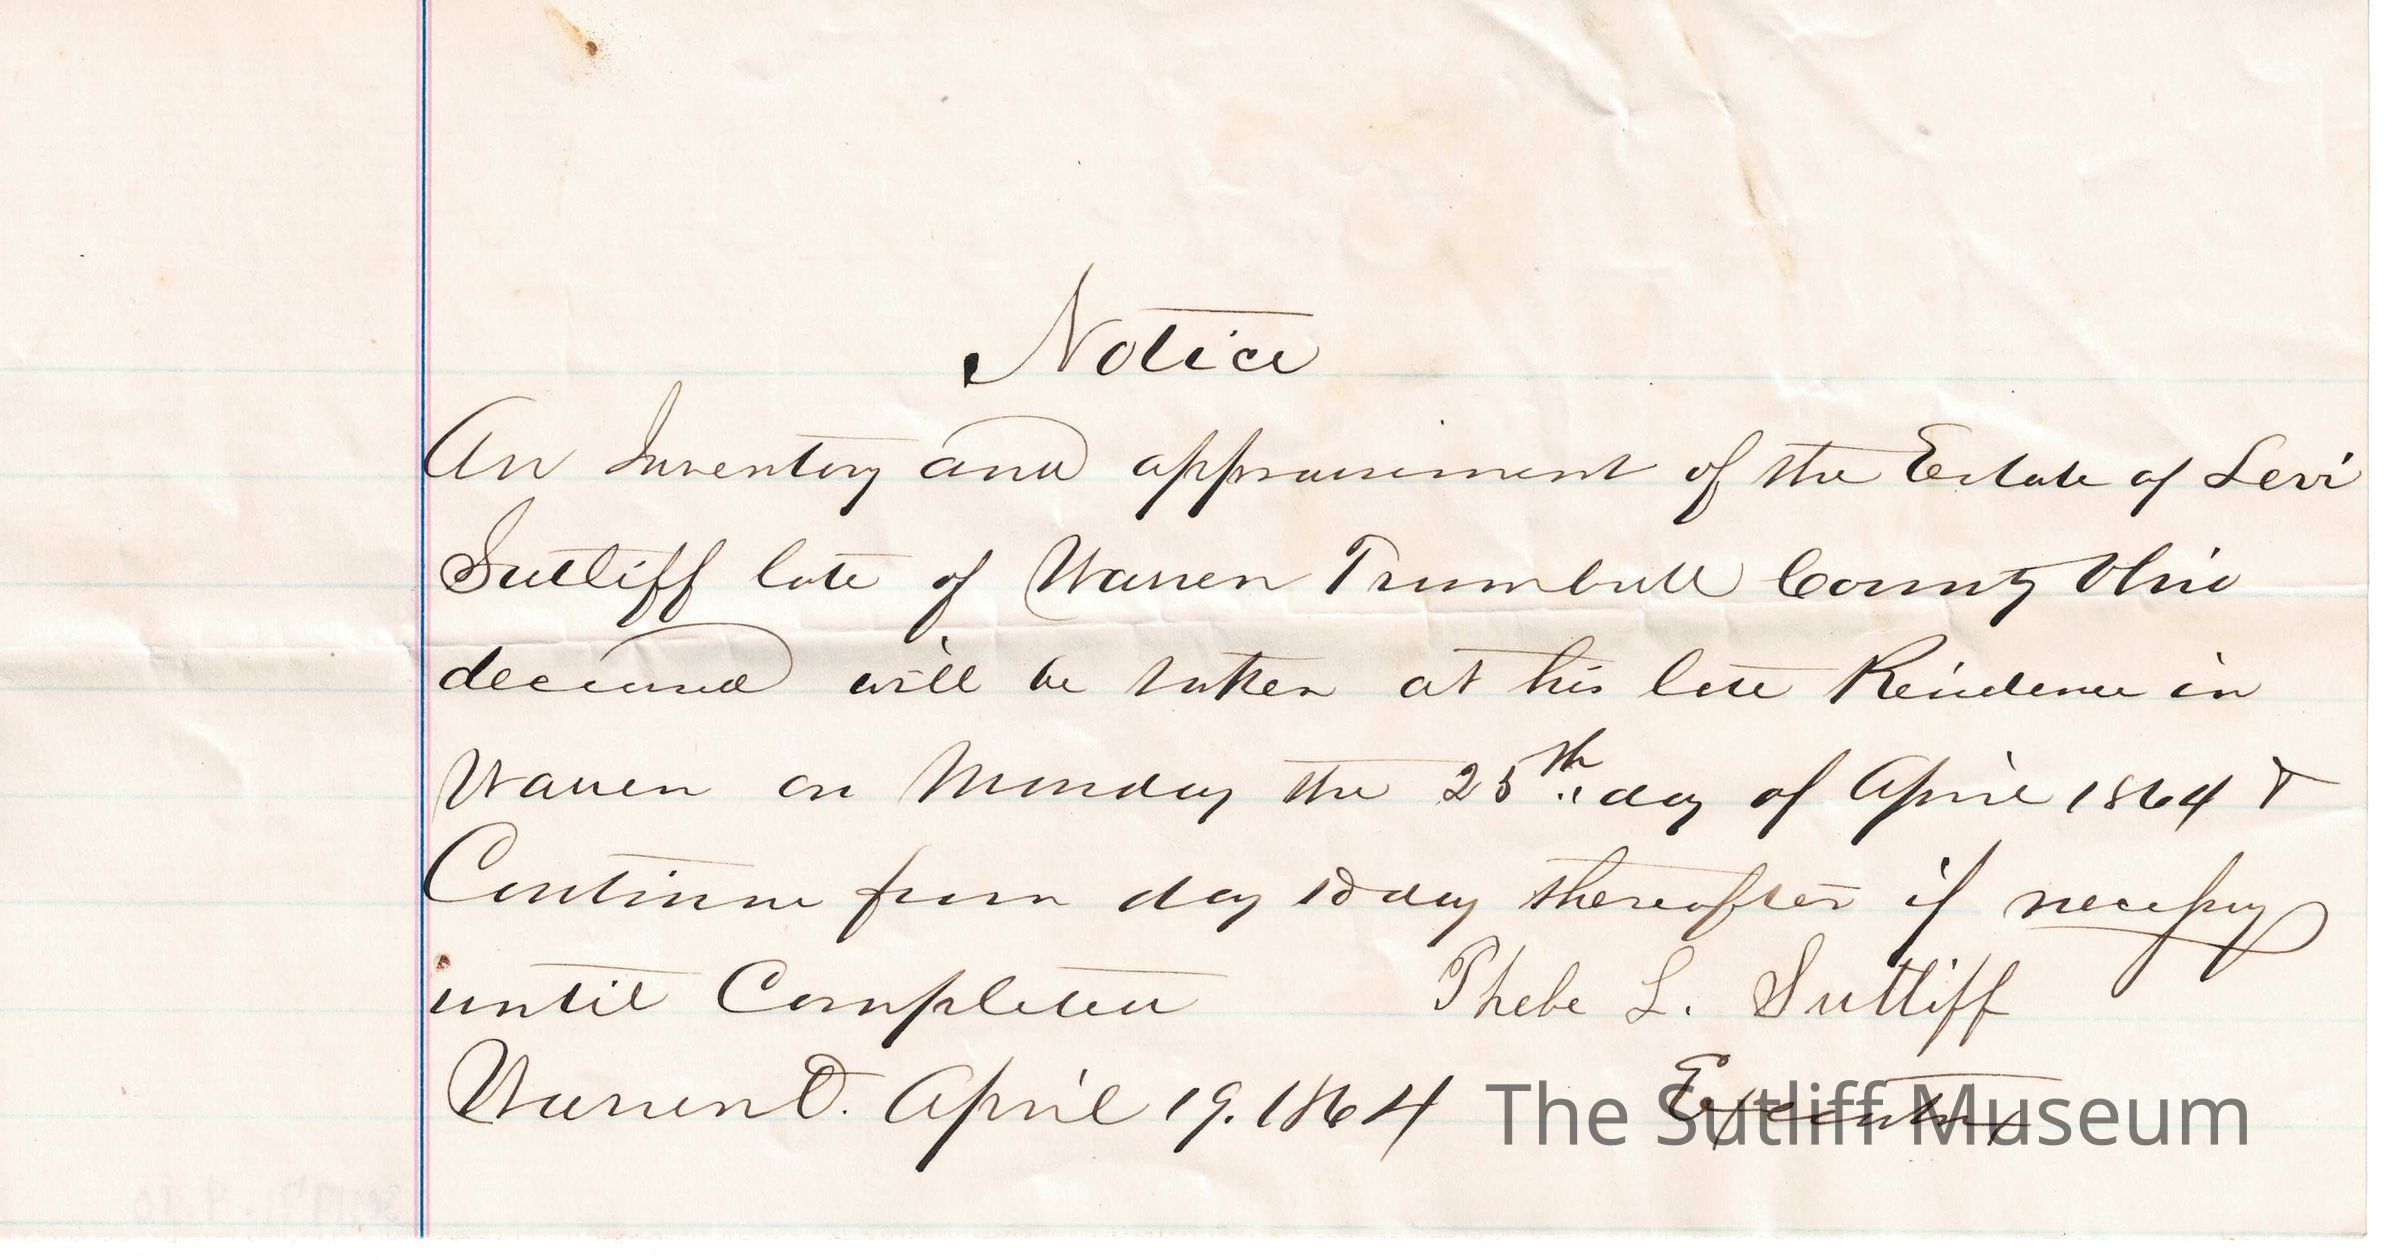 Notice
An Inventory and appraisement of the Estate of Levi
Sutliff late of Warren Trumbull County Ohio
deceased will be taken at his late Residence in
Warren on Monday the 25th day of April 1864 &
Continue from day to day thereafter if necessary
until Completed Phebe L. Sutliff
Warren O. April 19. 1864 Executrix
The Sutliff Museum